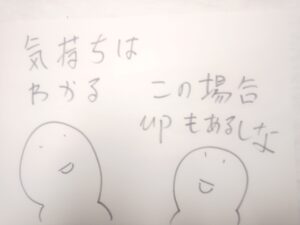 気持ちは
わかる
この場合
upもあるしな